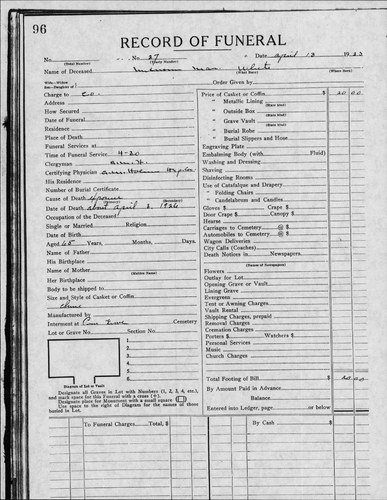 96
RECORD OF FUNERAL
No. No. 27 Date April 13 1923
(Total Number) (Yearly Number)
Name of Deceased Unknown Man White
(What Race) (Where Born)
Wife—Widow—
Son—Daughter of
Order Given by
Charge to Co.
Address
How Secured
Date of Funeral
Residence
Place of Death
Funeral Services at
Time of Funeral Service 4-20
Clergyman
Certifying Physician
His Residence
Number of Burial Certificate
Cause of Death
Date of Death about April 2, 1926
Occupation of the Deceased
Single or Married Religion
Date of Birth
Aged 65 Years, Months, Days.
Name of Father
His Birthplace
Name of Mother
(Maiden Name)
Her Birthplace
Body to be shipped to
Size and Style of Casket or Coffin
Manufactured by
Interment at Cemetery
Lot or Grave No. Section No.
1.
2.
3.
4.
5.
6.
7.
8.
Diagram of Lot or Vault
Designate all Graves in Lot with Numbers (1, 2, 3, 4, etc.),
and mark space for this Funeral with a cross (+).
Designate place for Monument with a small square (□)
Use space to the right of Diagram for the names of those
buried in Lot.
To Funeral Charges Total, $
Price of Casket or Coffin $ 20 00
" Metallic Lining
(State Kind)
" Outside Box
(State Kind)
" Grave Vault
(State Kind)
" Burial Robe
" Burial Slippers and Hose
Engraving Plate
Embalming Body (with Fluid)
Washing and Dressing
Shaving
Disinfecting Rooms
Use of Catafalque and Drapery
" Folding Chairs
" Candelabrum and Candles
Gloves $ Crape $
Door Crape $ Canopy $
Hearse
Carriages to Cemetery @ $
Automobiles to Cemetery @ $
Wagon Deliveries
City Calls (Coaches)
Death Notices in Newspapers
(Names of Newspapers)
Flowers
Outlay for Lot
Opening Grave or Vault
Lining Grave
Evergreen
Tent or Awning Charges
Vault Rental
Shipping Charges, prepaid
Removal Charges
Cremation Charges
Porters $ Watchers $
Personal Services
Music
Church Charges
Total Footing of Bill $ 20 00
By Amount Paid in Advance
Balance
Entered into Ledger, page or below
By Cash $